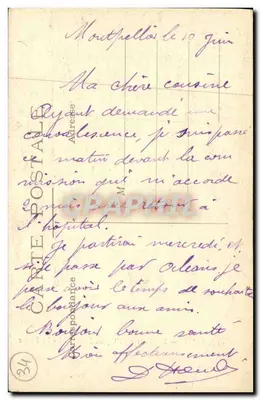 Montpellier le 10 juin
Ma chère cousine
Ayant demandé une
convalescence, je suis passé
ce matin devant la com
mission qui m'accorde
2 mois à
l'hôpital.
Je partirai mercredi, et
si je passe par Orléans, je
pense avoir le temps de souhaiter
le bonjour aux amis.
Bonjour bonne santé
affectueusement
D
CARTE POSTALE
Correspondance
Adresse
M
34